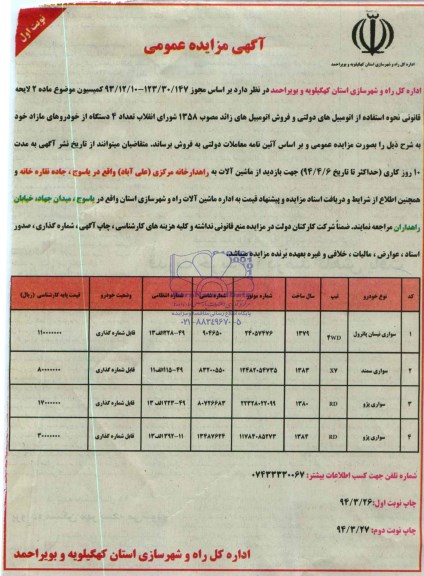 نوبت اول
اداره کل راه و شهرسازی استان کهگیلویه و بویراحمد
آگهی مزایده عمومی
اداره کل راه و شهرسازی استان کهگیلویه و بویراحمد در نظر دارد بر اساس مجوز ۱۲۳/۳۰/۱۴۷-۹۳/۱۲/۱۰ کمیسیون موضوع ماده ۲ لایحه
قانونی نحوه استفاده از اتومبیل های دولتی و فروش اتومبیل های زائد مصوب ۱۳۵۸ شورای انقلاب تعداد ۴ دستگاه از خودروهای مازاد خود
به شرح ذیل را بصورت مزایده عمومی و بر اساس آئین نامه معاملات دولتی به فروش برساند، متقاضیان میتوانند از تاریخ نشر آگهی به مدت
۱۰ روز کاری (حداکثر تا تاریخ ۹۴/۴/۶) جهت بازدید از ماشین آلات به راهدارخانه مرکزی (علی آباد) واقع در یاسوج ، جاده نقاره خانه و
همچنین اطلاع از شرایط و دریافت اسناد مزایده و پیشنهاد قیمت به اداره ماشین آلات راه و شهرسازی استان واقع در یاسوج ، میدان جهاد، خیابان
راهداران مراجعه نمایند. ضمناً شرکت کارکنان دولت در مزایده منع قانونی نداشته و کلیه هزینه های کارشناسی ، چاپ آگهی ، شماره گذاری ، صدور
اسناد ، عوارض ، مالیات ، خلافی و غیره بعهده برنده مزایده میباشد.
کد نوع خودرو تیپ سال ساخت شماره موتور شماره شاسی شماره انتظامی وضعیت خودرو قیمت پایه کارشناسی (ریال)
۱ سواری نیسان پاترول ۴WD ۱۳۷۹ ۲۴۰۵۷۴۷۶ ۹۰۴۶۵۰ ۴۹-۳۲۸الف۱۳ قابل شماره گذاری ۱۱۰۰۰۰۰۰۰
۲ سواری سمند X۷ ۱۳۸۳ ۱۲۴۸۲۰۵۴۷۳۵ ۸۳۲۰۰۵۵۰ ۴۹-۹۱۵الف۱۱ قابل شماره گذاری ۸۰۰۰۰۰۰۰
۳ سواری پژو RD ۱۳۸۰ ۲۲۳۲۸۰۲۲۰۹۹ ۸۰۷۲۶۶۸۳ ۴۹-۲۲۳الف ۱۳ قابل شماره گذاری ۱۷۰۰۰۰۰۰
۴ سواری پژو RD ۱۳۸۴ ۱۱۷۸۲۰۸۵۴۷۳ ۱۳۴۸۷۶۲۴ ۱۱-۳۹۲الف۱۳ قابل شماره گذاری ۳۰۰۰۰۰۰۰
پایگاه اطلاع رسانی مناقصه و مزایده
۰۲۱-۸۸۳۴۹۶۷۰-۵
شماره تلفن جهت کسب اطلاعات بیشتر: ۰۷۴۳۳۳۳۰۰۶۷
چاپ نوبت اول: ۹۴/۳/۲۶
چاپ نوبت دوم: ۹۴/۳/۲۷
اداره کل راه و شهرسازی استان کهگیلویه و بویراحمد